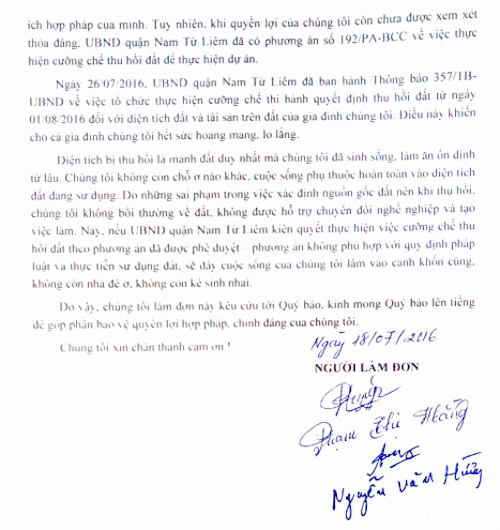 ích hợp pháp của mình. Tuy nhiên, khi quyền lợi của chúng tôi còn chưa được xem xét
thỏa đáng, UBND quận Nam Từ Liêm đã có phương án số 192/PA-BCC về việc thực
hiện cưỡng chế thu hồi đất để thực hiện dự án.
Ngày 26/07/2016, UBND quận Nam Từ Liêm đã ban hành Thông báo 357/TB-
UBND về việc tổ chức thực hiện cưỡng chế thi hành quyết định thu hồi đất từ ngày
01/08/2016 đối với diện tích đất và tài sản trên đất của gia đình chúng tôi. Điều này khiến
cho cả gia đình chúng tôi hết sức hoang mang, lo lắng.
Diện tích bị thu hồi là mảnh đất duy nhất mà chúng tôi đã sinh sống, làm ăn ổn định
từ lâu. Chúng tôi không còn chỗ ở nào khác, cuộc sống phụ thuộc hoàn toàn vào diện tích
đất đang sử dụng. Do những sai phạm trong việc xác định nguồn gốc đất nên khi thu hồi,
chúng tôi không bồi thường về đất, không được hỗ trợ chuyển đổi nghề nghiệp và tạo
việc làm. Nay, nếu UBND quận Nam Từ Liêm kiên quyết thực hiện việc cưỡng chế thu
hồi đất theo phương án đã được phê duyệt – phương án không phù hợp với quy định pháp
luật và thực tiễn sử dụng đất, sẽ đẩy cuộc sống của chúng tôi lâm vào cảnh khốn cùng,
không còn nhà để ở, không còn kế sinh nhai.
Do vậy, chúng tôi làm đơn này kêu cứu tới Quý báo, kính mong Quý báo lên tiếng
để góp phần bảo vệ quyền lợi hợp pháp, chính đáng của chúng tôi.
Chúng tôi xin chân thành cảm ơn !
Ngày 18/07/2016
NGƯỜI LÀM ĐƠN
Phạm Thị Hoàng
Nguyễn Văn Hùng